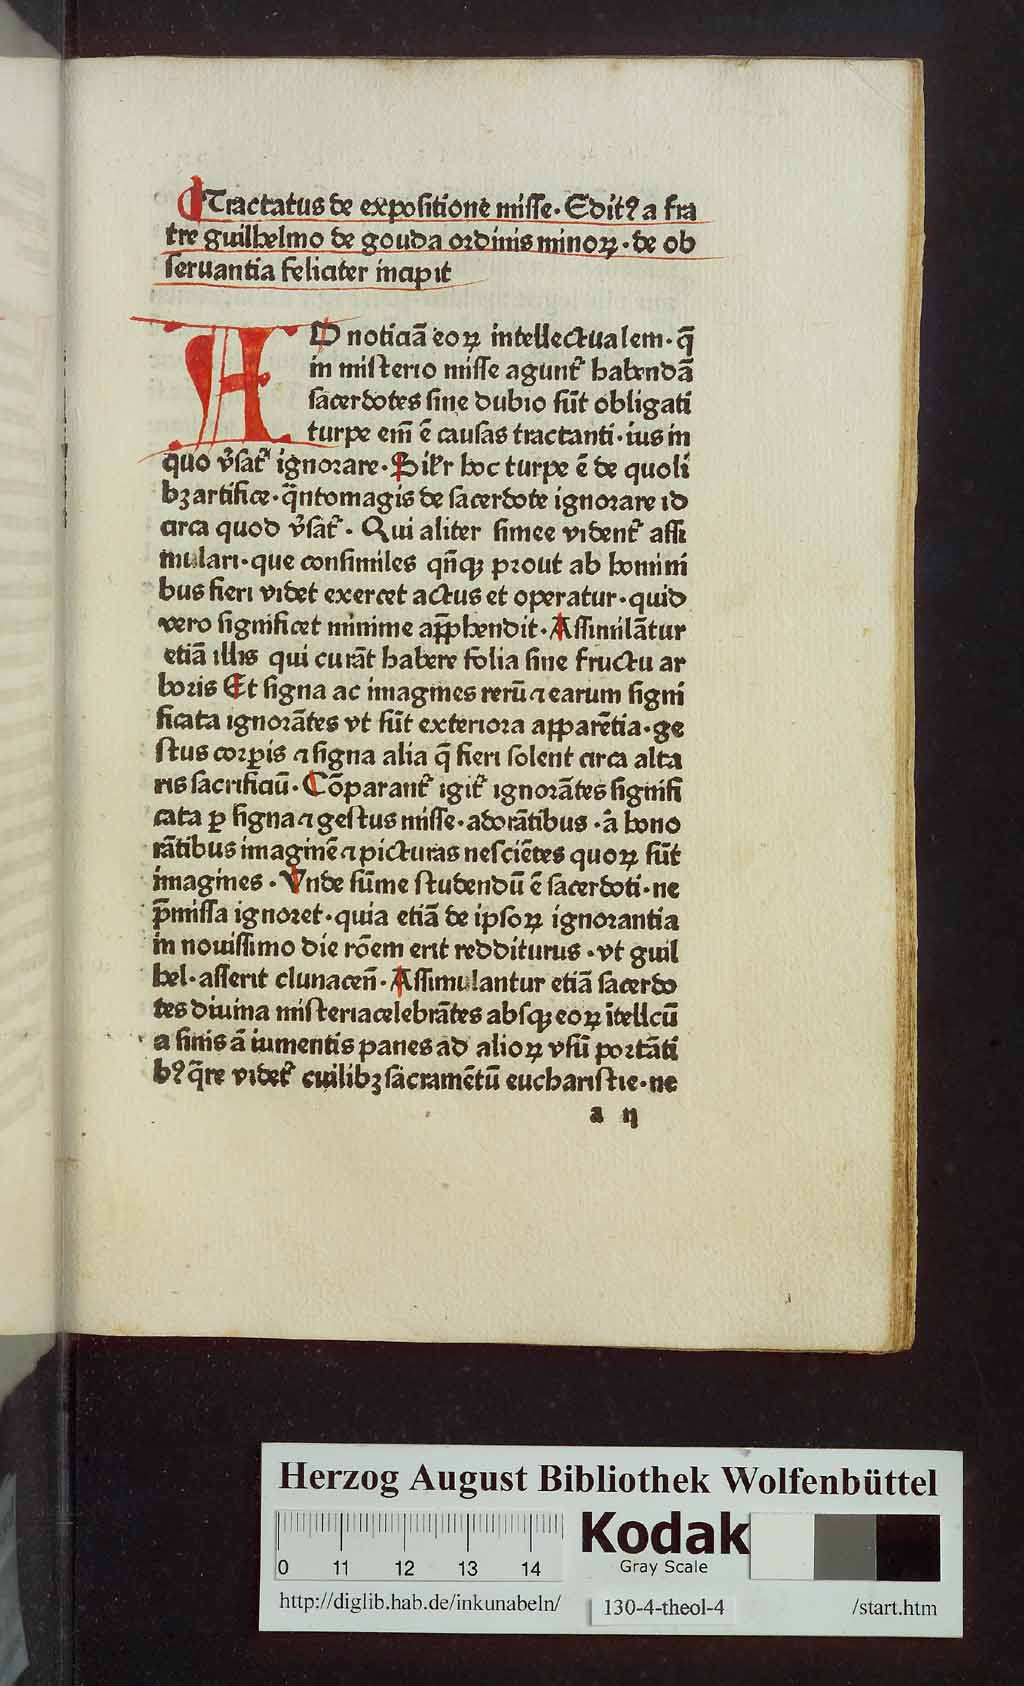 Tractatus de expositione misse. Editꝰ a fra
tre guilhelmo de gouda ordinis minoꝝ. de ob
seruantia feliciter incipit
AD noticiā eoꝝ intellectualem. q̄
in misterio misse agunt᷑ habendā
sacerdotes sine dubio sūt obligati
turpe em̄ ē causas tractanti. ius in
quo v̓sat᷑ ignorare. Silr̓ hoc turpe ē de quoli
bꝫ artifice. q̄ntomagis de sacerdote ignorare id
circa quod v̓sat᷑. Qui aliter simee vident᷑ assi
mulari. que consimiles qn̄qꝫ prout ab homini
bus fieri videt exercet actus et operatur. quid
vero significet minime app̄hendit. Assimilātur
etiā illis qui curāt habere folia sine fructu ar
boris Et signa ac imagines rerū ⁊ earum signi
ficata ignorātes vt sūt exteriora apparētia. ge
stus corꝑis ⁊ signa alia q̄ fieri solent circa alta
ris sacrificiū. Cōparant᷑ igit᷑ ignorātes signifi
cata ꝑ signa ⁊ gestus misse. adorātibus. ā hono
rātibus imaginē ⁊ picturas nesciētes quoꝝ sūt
imagines. Vnde sūme studendū ē sacerdoti. ne
p̄missa ignoret. quia etiā de ipsoꝝ ignorantia
in nouissimo die rōem erit redditurus. vt guil
hel. asserit clunaceñ. Assimulantur etiā sacerdo
tes diuina misteria celebrātes absqꝫ eoꝝ ītellcū
a sinis ā iumentis panes ad alioꝝ vsū portāti
bꝰ q̄re videt᷑ cuilibꝫ sacramētū eucharistie. ne
a ij
Herzog August Bibliothek Wolfenbüttel
0 11 12 13 14
Kodak
Gray Scale
http://diglib.hab.de/inkunabeln/ 130-4-theol-4 /start.htm